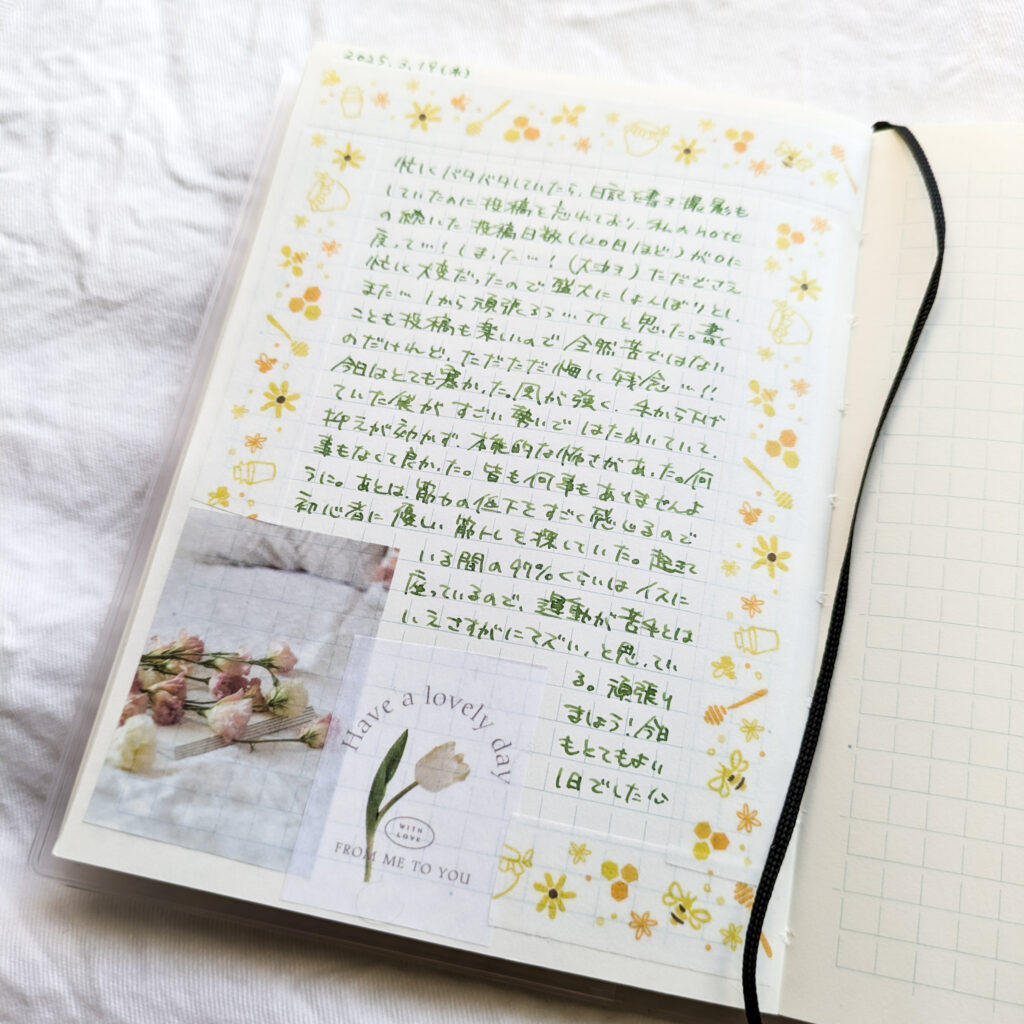 2025.3.19(水)
忙しくバタバタしていたら、日記を書き撮影も
していたのに投稿を忘れており、私のnote
の続いた投稿日数(120日ほど)が0に
戻って…!しまった…!(大ショ)ただでさえ
忙しく大変だったので盛大にしょんぼりとし、
また…1から頑張ろう…てて と思った。書く
ことも投稿も楽しいので全然苦ではない
のだけれど、ただただ悔しく残念…!!
今日はとても寒かった。風が強く、手から下げ
ていた傘がすごい勢いではためいていて、
抑えが効かず、本能的な怖さがあった。何
事もなくて良かった。皆も何事もありませんよ
うに。あとは、筋力の低下をすごく感じるので
初心者に優しい筋トレを探していた。起きて
いる間の97%くらいはイスに
座っているので、運動が苦手とは
いえさすがにマズい、と思ってい
る。頑張り
ましょう!今日
もとてもよい
1日でした
Have a lovely day
WITH
LOVE
FROM ME TO YOU